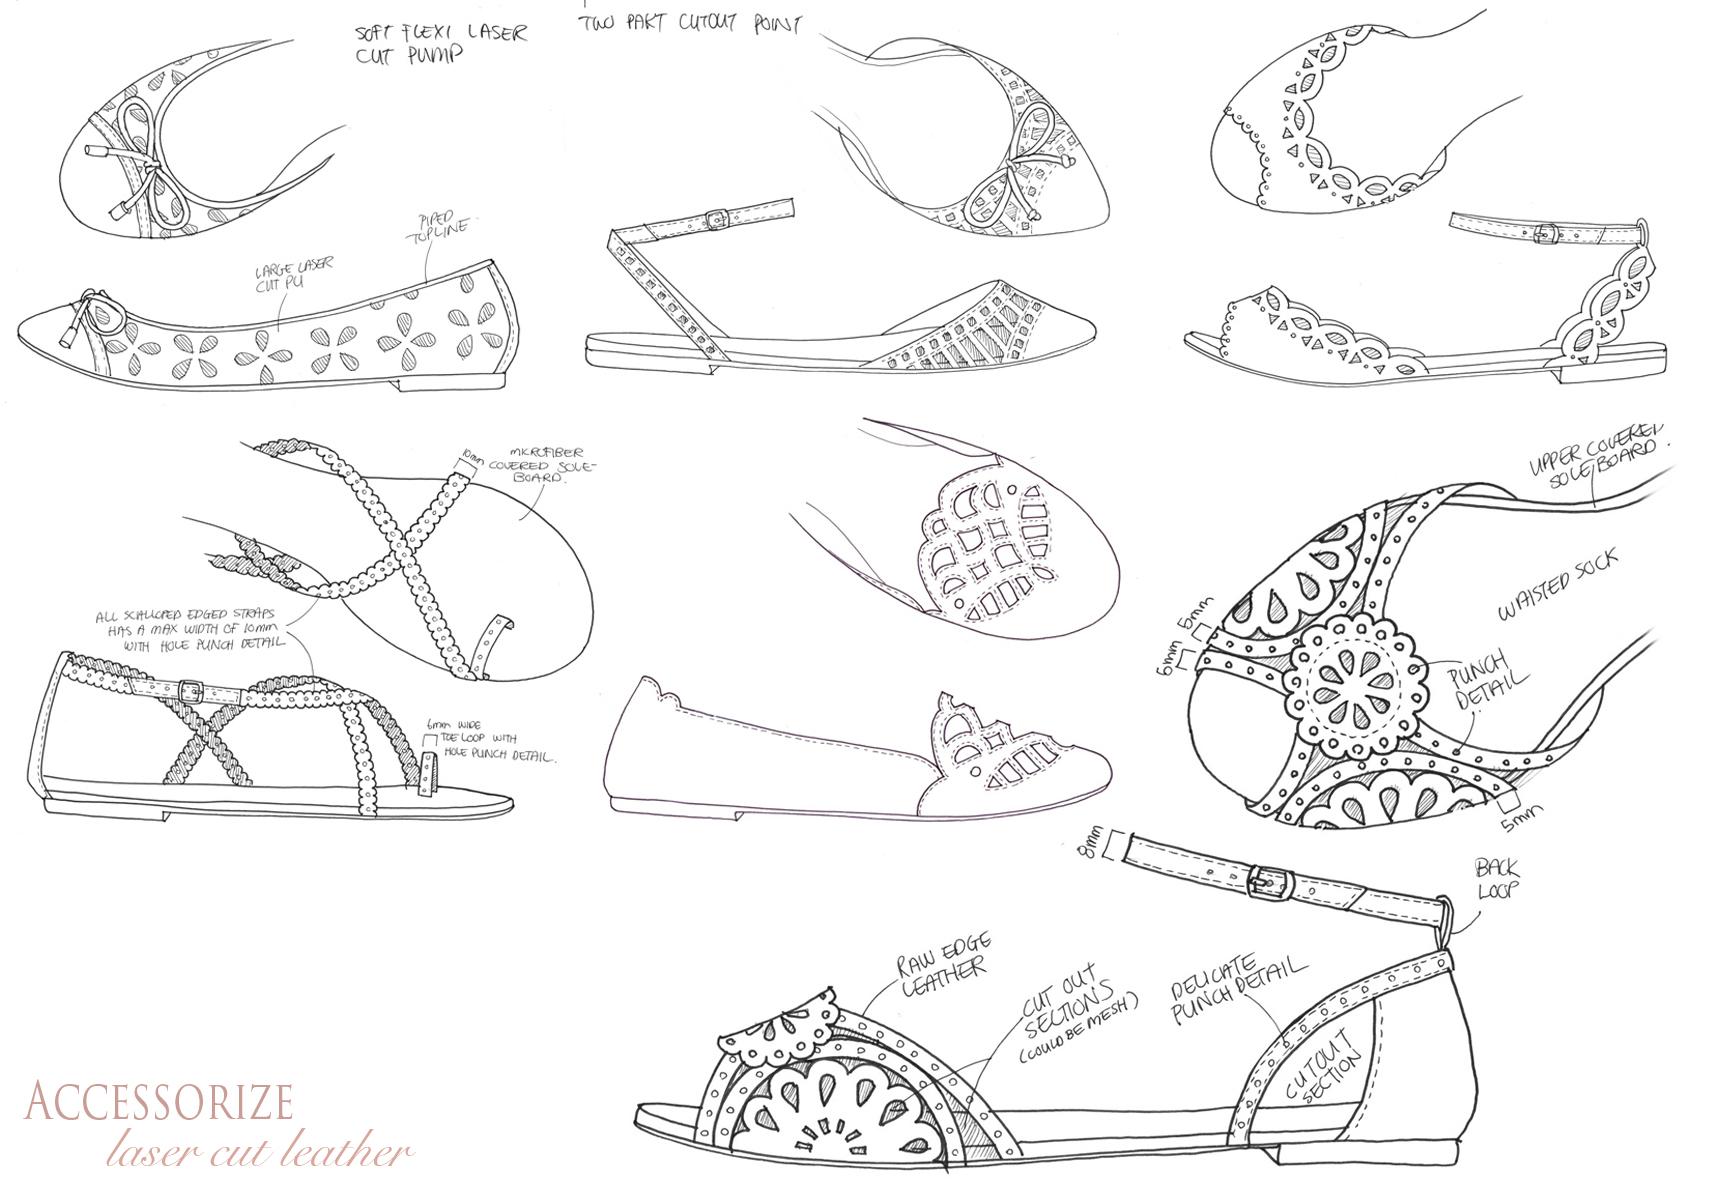 SOFT FLEXI LASER
CUT PUMP
TWO PART CUTOUT POINT
PIPED
TOPLINE
LARGE LASER
CUT PU
10mm
MICROFIBER
COVERED SOLE-
BOARD.
ALL SCALLOPED EDGED STRAPS
HAS A MAX WIDTH OF 10mm
WITH HOLE PUNCH DETAIL
6mm WIDE
TOE LOOP WITH
HOLE PUNCH DETAIL.
UPPER COVERED
SOLE BOARD.
WAISTED SOCK
5mm
5mm
PUNCH
DETAIL
5mm
8mm
BACK
LOOP
RAW EDGE
LEATHER
CUT OUT
SECTIONS
(COULD BE MESH)
DELICATE
PUNCH DETAIL
CUTOUT
SECTION
ACCESSORIZE
laser cut leather